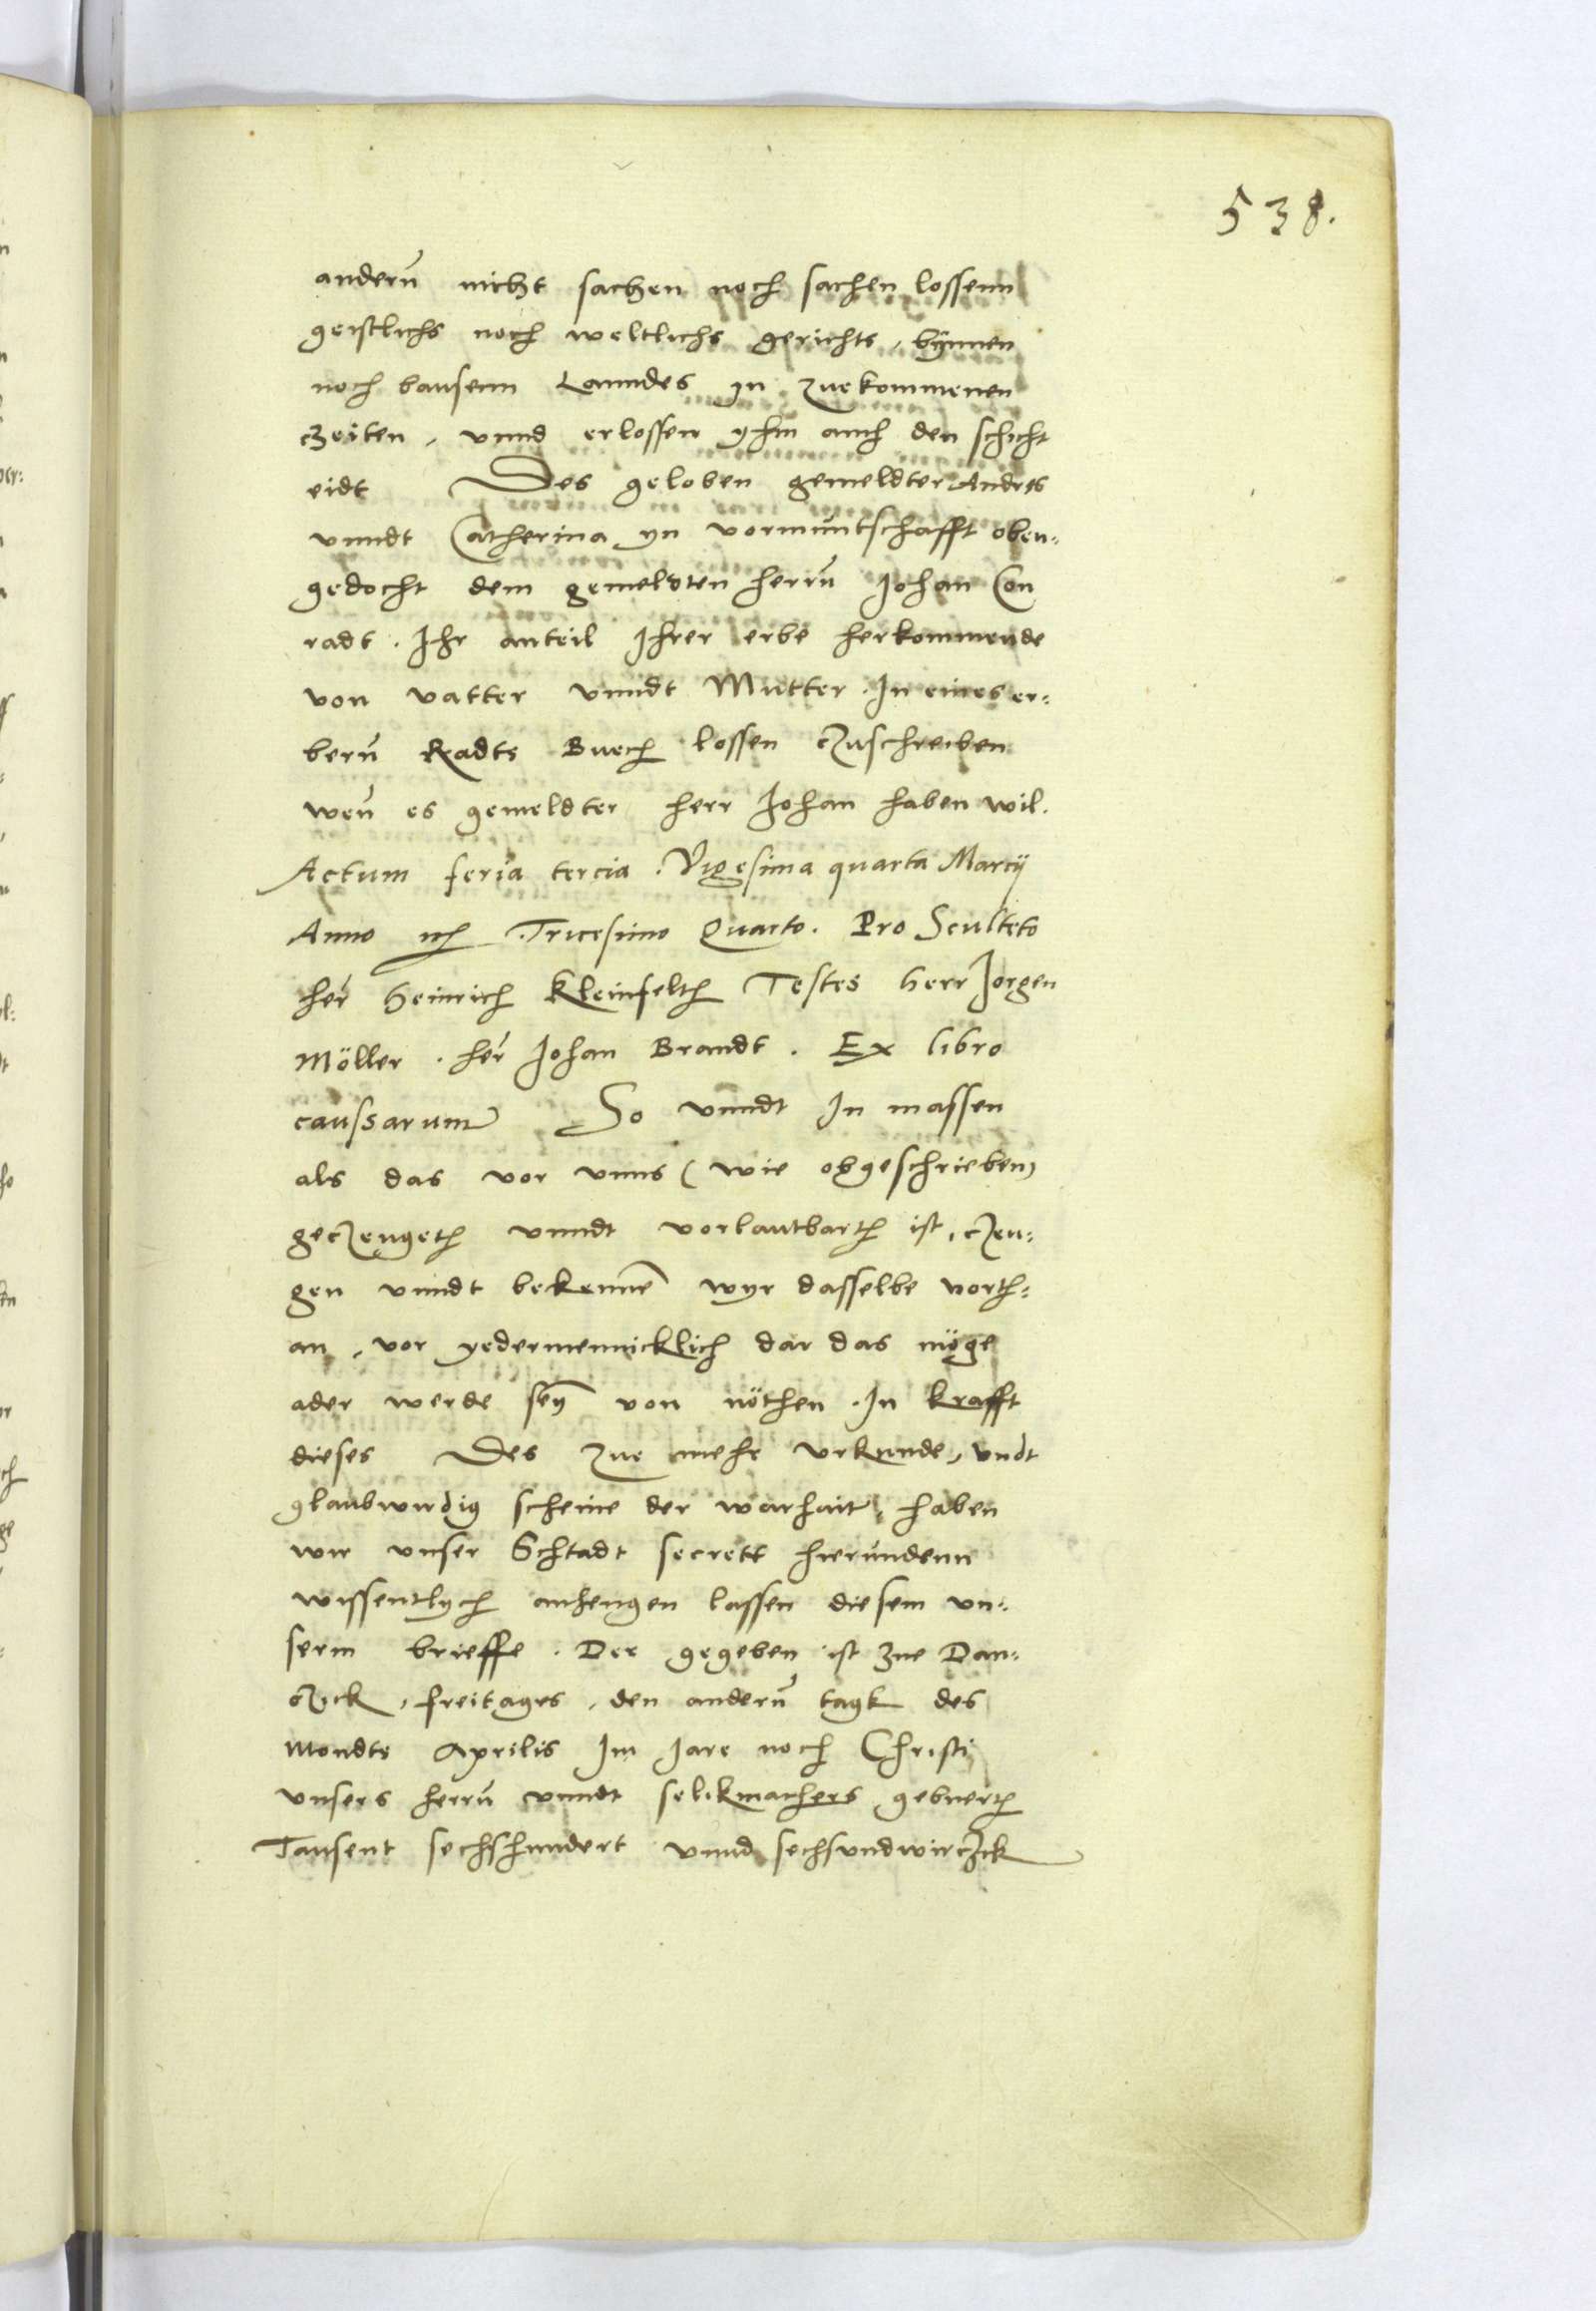 538.
anderñ nicht sachen noch sachen lossenn
geistlichs noch weltlichs gerichts, bÿnnen
noch bausenn Lanndes yn zuekommenen
czeiten, vnnd erlossen yhm auch den schicht
eidt Des geloben gemeldter Andres
vnndt Catherina yn vormuntschafft oben-
gedocht dem gemeldten herrñ Johan Con
radt. Ihr anteil Ihrer erbe herkommende
von vatter vnndt Mutter. In eines er-
berñ Radts Buech lossen czuschreiben
weñ es gemeldter herr Johan haben wil.
Actum feria tercia. Vigesima quarta Marcij
Anno Tricesimo Quarto. Pro Sculteto
her Heinrich Kleinfelth Testes herr Jorgen
Möller. her Johan Brandt. Ex libro
caussarum So vnndt In massen
als das vor vnns (wie obgeschrieben)
geczeugeth vnndt vorlautbarth ist, czeu-
gen vnndt bekennē wyr dasselbe vorth-
an, vor yedermennicklich dar das möge
ader werde seȳ von nöthen. In krafft
dieses Des zue mehr vrkunde, vndt
glaubwirdig scheine der warhait, haben
wir vnser Schtadt secrett hierundenn
wissentlych anhengen lassen diesem vn-
serm brieffe. Der gegeben ist zue Dan-
czick, freitages, den anderñ tagk des
Mondts Aprilis Im Jare noch Christi
vnsers herrñ vnndt selikmachers gebuerth
Tausent sechshundert vnnd sechsvndwirczick